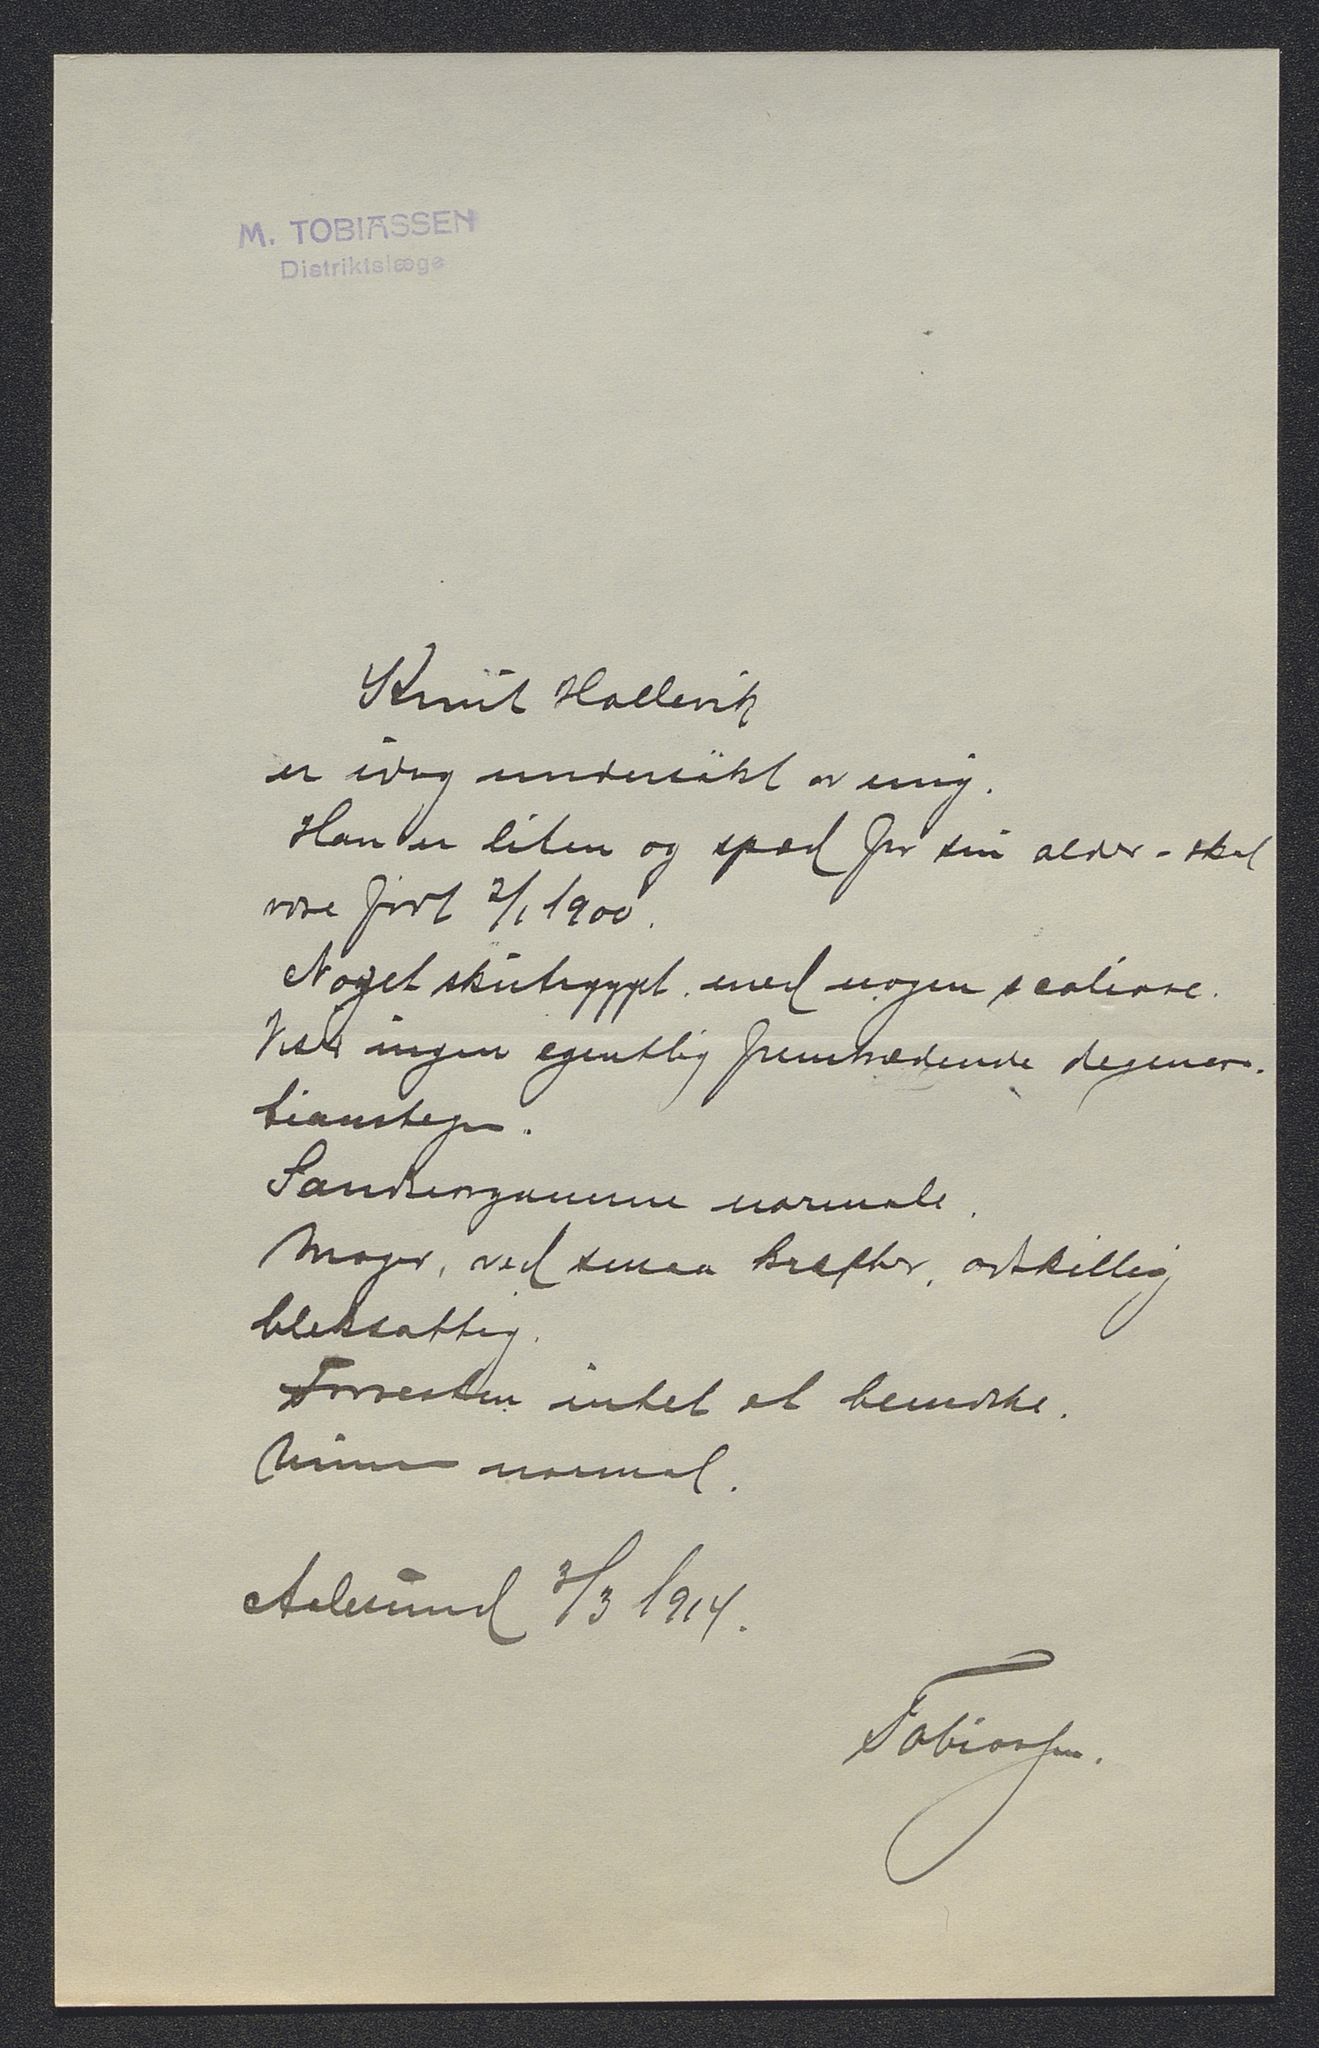 M. TOBIASSEN
Distriktslæge
Knut Hallevik
er idag undersökt av mig.
Han er liten og spæd for sin alder - skal
være født 2/1 1900.
Noget skutrygget med nogen scoliose.
Viser ingen egentlig fremtrædende degenera-
tionstegn.
Sandseorganerne normale.
Mager, ved smaa kræfter, adskillig
bleksottig.
Forresten intet at bemerke.
Minne normal.
Aalesund 3/3 1914.
Tobiassen.